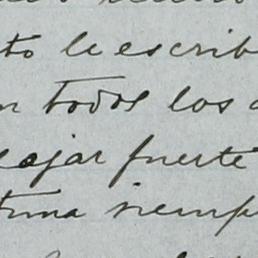 to le escrib
n todos los a
ajar fuerte
tuna siemp